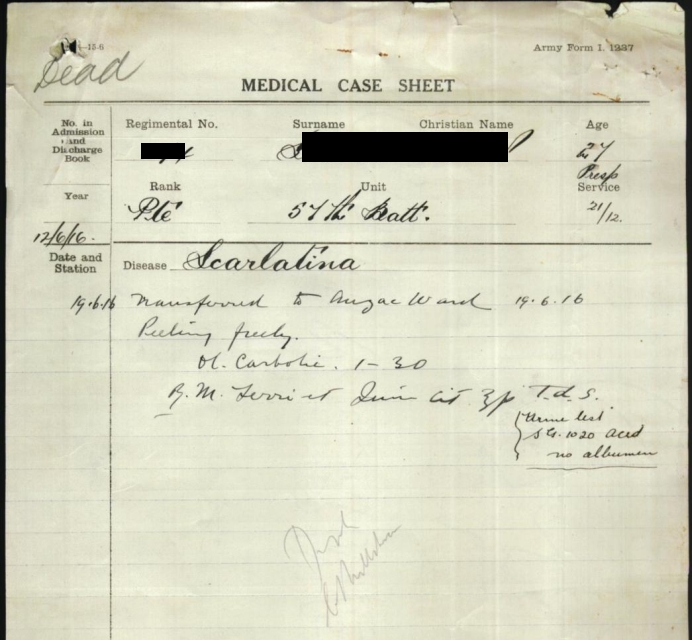 —13-6
Dead
Army Form I. 1237
MEDICAL CASE SHEET
No. in Admission and Discharge Book
Regimental No. Surname Christian Name Age
27
Presp
Year
Rank Unit Service
Pte 57th Batt. 2/12.
12/6/16.
Date and Station
Disease Scarlatina
19.6.16 Transferred to Anzac Ward 19.6.16
Peeling freely.
Ol. Carbolic. 1-30
R. M. Ferri et Quin Cit ʒp T.d.S.
Urine test
S.G. 1020 acid
no albumen